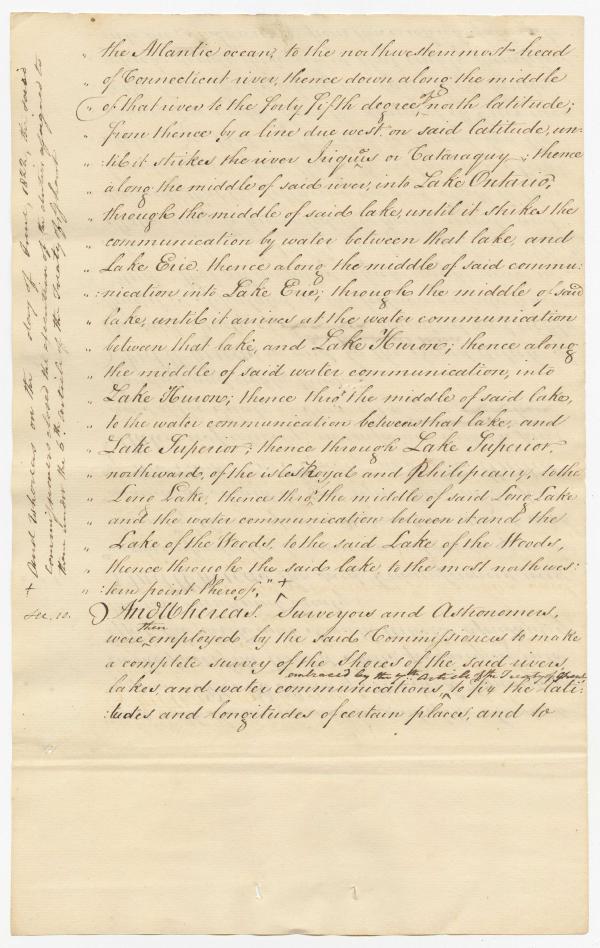 " the Atlantic ocean, to the northwesternmost head
" of Connecticut river, thence down along the middle
" of that river to the forty fifth degree of north latitude;
" from thence by a line due west on said latitude, un-
" :til it strikes the river Iriquois or Cataraquy; thence
" along the middle of said river, into Lake Ontario,
" through the middle of said lake, until it strikes the
" communication by water between that lake, and
" Lake Erie. thence along the middle of said commu:
" :nication into Lake Erie; through the middle of said
" lake, until it arrives at the water communication
" between that lake, and Lake Huron; thence along
" the middle of said water communication, into
" Lake Huron; thence thro' the middle of said lake,
" to the water communication between that lake, and
" Lake Superior; thence through Lake Superior,
" northward, of the isles Royal and Philipeaux, to the
" Long Lake, thence thro' the middle of said Long Lake
" and the water communication between it and the
" Lake of the Woods, to the said Lake of the Woods,
" thence through the said lake, to the most northwes:
" :tern point thereof," +
And Whereas. Surveyors and Astronomers,
were then employed by the said Commissioners to make
a complete survey of the Shores of the said rivers,
embraced by the 7th Article of the Treaty of Ghent
lakes, and water communications, to fix the lati:
:tudes and longitudes of certain places, and to
+ And whereas on the day of June, 1822, the said
Commissioners closed the execution of the duties assigned to
them under the 6th article of the Treaty of Ghent
Sec. 10.